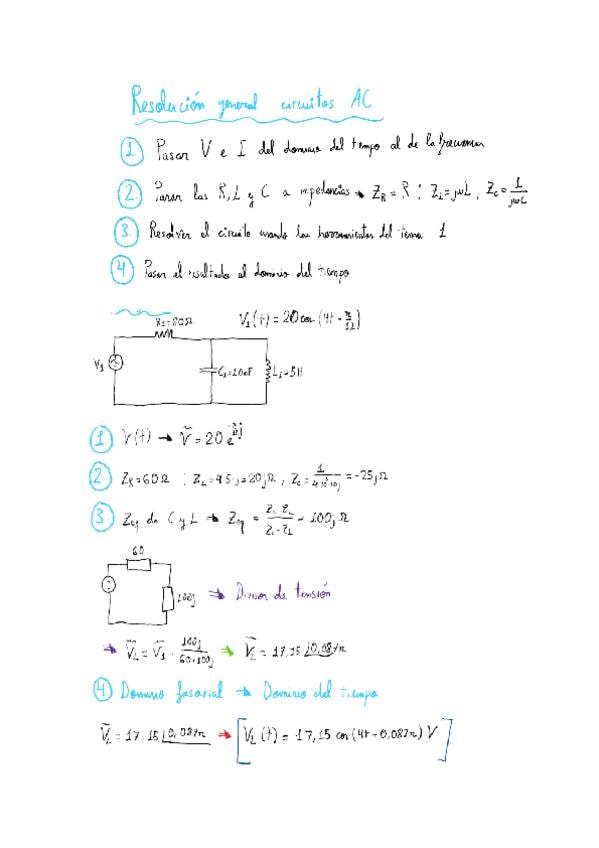 Resolución general circuitos AC
1 Pasar V e I del dominio del tiempo al de la frecuencia
2 Pasar las R, L y C a impedancias → Z_R = R ; Z_L = jωL, Z_C = 1/jωC
3 Resolver el circuito usando las herramientas del tema 1
4 Pasar el resultado al dominio del tiempo
V₁(t) = 20 cos (4t -
V₁
L₁=5H
1 V(t) → Ṽ = 20 e
2 Z_R = 60Ω ; Z_L = 4·5·j = 20jΩ, Z_C = = -25jΩ
3 Z_eq de C y L → Z_eq = = 100jΩ
60
100j → Divisor de tensión
→ Ṽ_L = Ṽ₁ · 100j/60+100j → Ṽ_L = 17,15 |0,087π
4 Dominio fasorial → Dominio del tiempo
Ṽ_L = 17,15 |0,087π → [V_L(t) = 17,15 cos (4t + 0,087π) V]